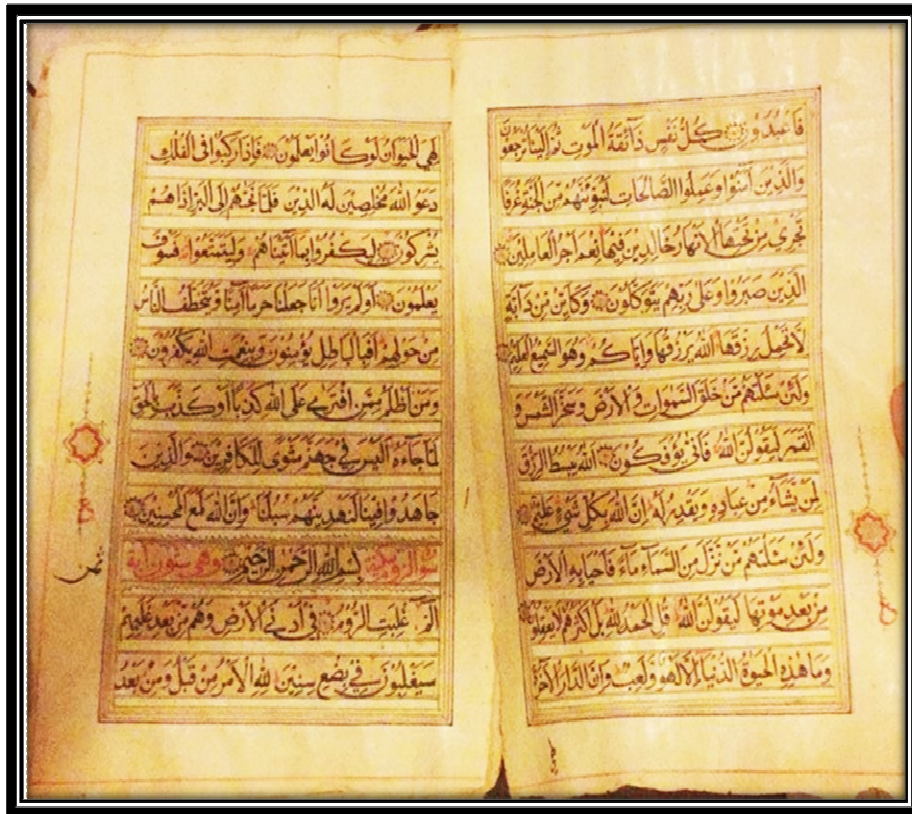 فَاعْبُدُونِ كُلُّ نَفْسٍ ذَآئِقَةُ الْمَوْتِ ثُمَّ اِلَيْنَا تُرْجَعُونَ
وَالَّذِينَ آمَنُوا وَعَمِلُوا الصَّالِحَاتِ لَنُبَوِّئَنَّهُمْ مِنَ الْجَنَّةِ غُرَفًا
تَجْرِي مِنْ تَحْتِهَا الْاَنْهَارُ خَالِدِينَ فِيهَا نِعْمَ اَجْرُ الْعَامِلِينَ
الَّذِينَ صَبَرُوا وَعَلَى رَبِّهِمْ يَتَوَكَّلُونَ وَكَاَيِّنْ مِنْ دَآبَّةٍ
لَا تَحْمِلُ رِزْقَهَا اللهُ يَرْزُقُهَا وَاِيَّاكُمْ وَهُوَ السَّمِيعُ الْعَلِيمُ
وَلَئِنْ سَئَلْتَهُمْ مَنْ خَلَقَ السَّمٰوَاتِ وَالْاَرْضَ وَسَخَّرَ الشَّمْسَ وَ
الْقَمَرَ لَيَقُولُنَّ اللهُ فَاَنّٰى يُؤْفَكُونَ اللهُ يَبْسُطُ الرِّزْقَ
لِمَنْ يَشَآءُ مِنْ عِبَادِهِ وَيَقْدِرُ لَهُ اِنَّ اللهَ بِكُلِّ شَيْءٍ عَلِيمٌ
وَلَئِنْ سَئَلْتَهُمْ مَنْ نَزَّلَ مِنَ السَّمَآءِ مَآءً فَاَحْيَا بِهِ الْاَرْضَ
مِنْ بَعْدِ مَوْتِهَا لَيَقُولُنَّ اللهُ قُلِ الْحَمْدُ لِلّٰهِ بَلْ اَكْثَرُهُمْ لَا يَعْقِلُونَ
وَمَا هٰذِهِ الْحَيٰوةُ الدُّنْيَا اِلَّا لَهْوٌ وَلَعِبٌ وَاِنَّ الدَّارَ الْاٰخِرَةَ
لَهِيَ الْحَيَوَانُ لَوْ كَانُوا يَعْلَمُونَ فَاِذَا رَكِبُوا فِى الْفُلْكِ
دَعَوُا اللهَ مُخْلِصِينَ لَهُ الدِّينَ فَلَمَّا نَجّٰهُمْ اِلَى الْبَرِّ اِذَا هُمْ
يُشْرِكُونَ لِيَكْفُرُوا بِمَا آتَيْنَاهُمْ وَلِيَتَمَتَّعُوا فَسَوْفَ
يَعْلَمُونَ اَوَلَمْ يَرَوْا اَنَّا جَعَلْنَا حَرَمًا آمِنًا وَيُتَخَطَّفُ النَّاسُ
مِنْ حَوْلِهِمْ اَفَبِالْبَاطِلِ يُؤْمِنُونَ وَبِنِعْمَةِ اللهِ يَكْفُرُونَ
وَمَنْ اَظْلَمُ مِمَّنِ افْتَرٰى عَلَى اللهِ كَذِبًا اَوْ كَذَّبَ بِالْحَقِّ
لَمَّا جَآءَهُ اَلَيْسَ فِي جَهَنَّمَ مَثْوًى لِلْكَافِرِينَ وَالَّذِينَ
جَاهَدُوا فِينَا لَنَهْدِيَنَّهُمْ سُبُلَنَا وَاِنَّ اللهَ لَمَعَ الْمُحْسِنِينَ
سورة الروم مكية بِسْمِ اللهِ الرَّحْمٰنِ الرَّحِيمِ وهى ستون آية
الٓمٓ غُلِبَتِ الرُّومُ فِي اَدْنَى الْاَرْضِ وَهُمْ مِنْ بَعْدِ غَلَبِهِمْ
سَيَغْلِبُونَ فِي بِضْعِ سِنِينَ لِلّٰهِ الْاَمْرُ مِنْ قَبْلُ وَمِنْ بَعْدُ
ثمن